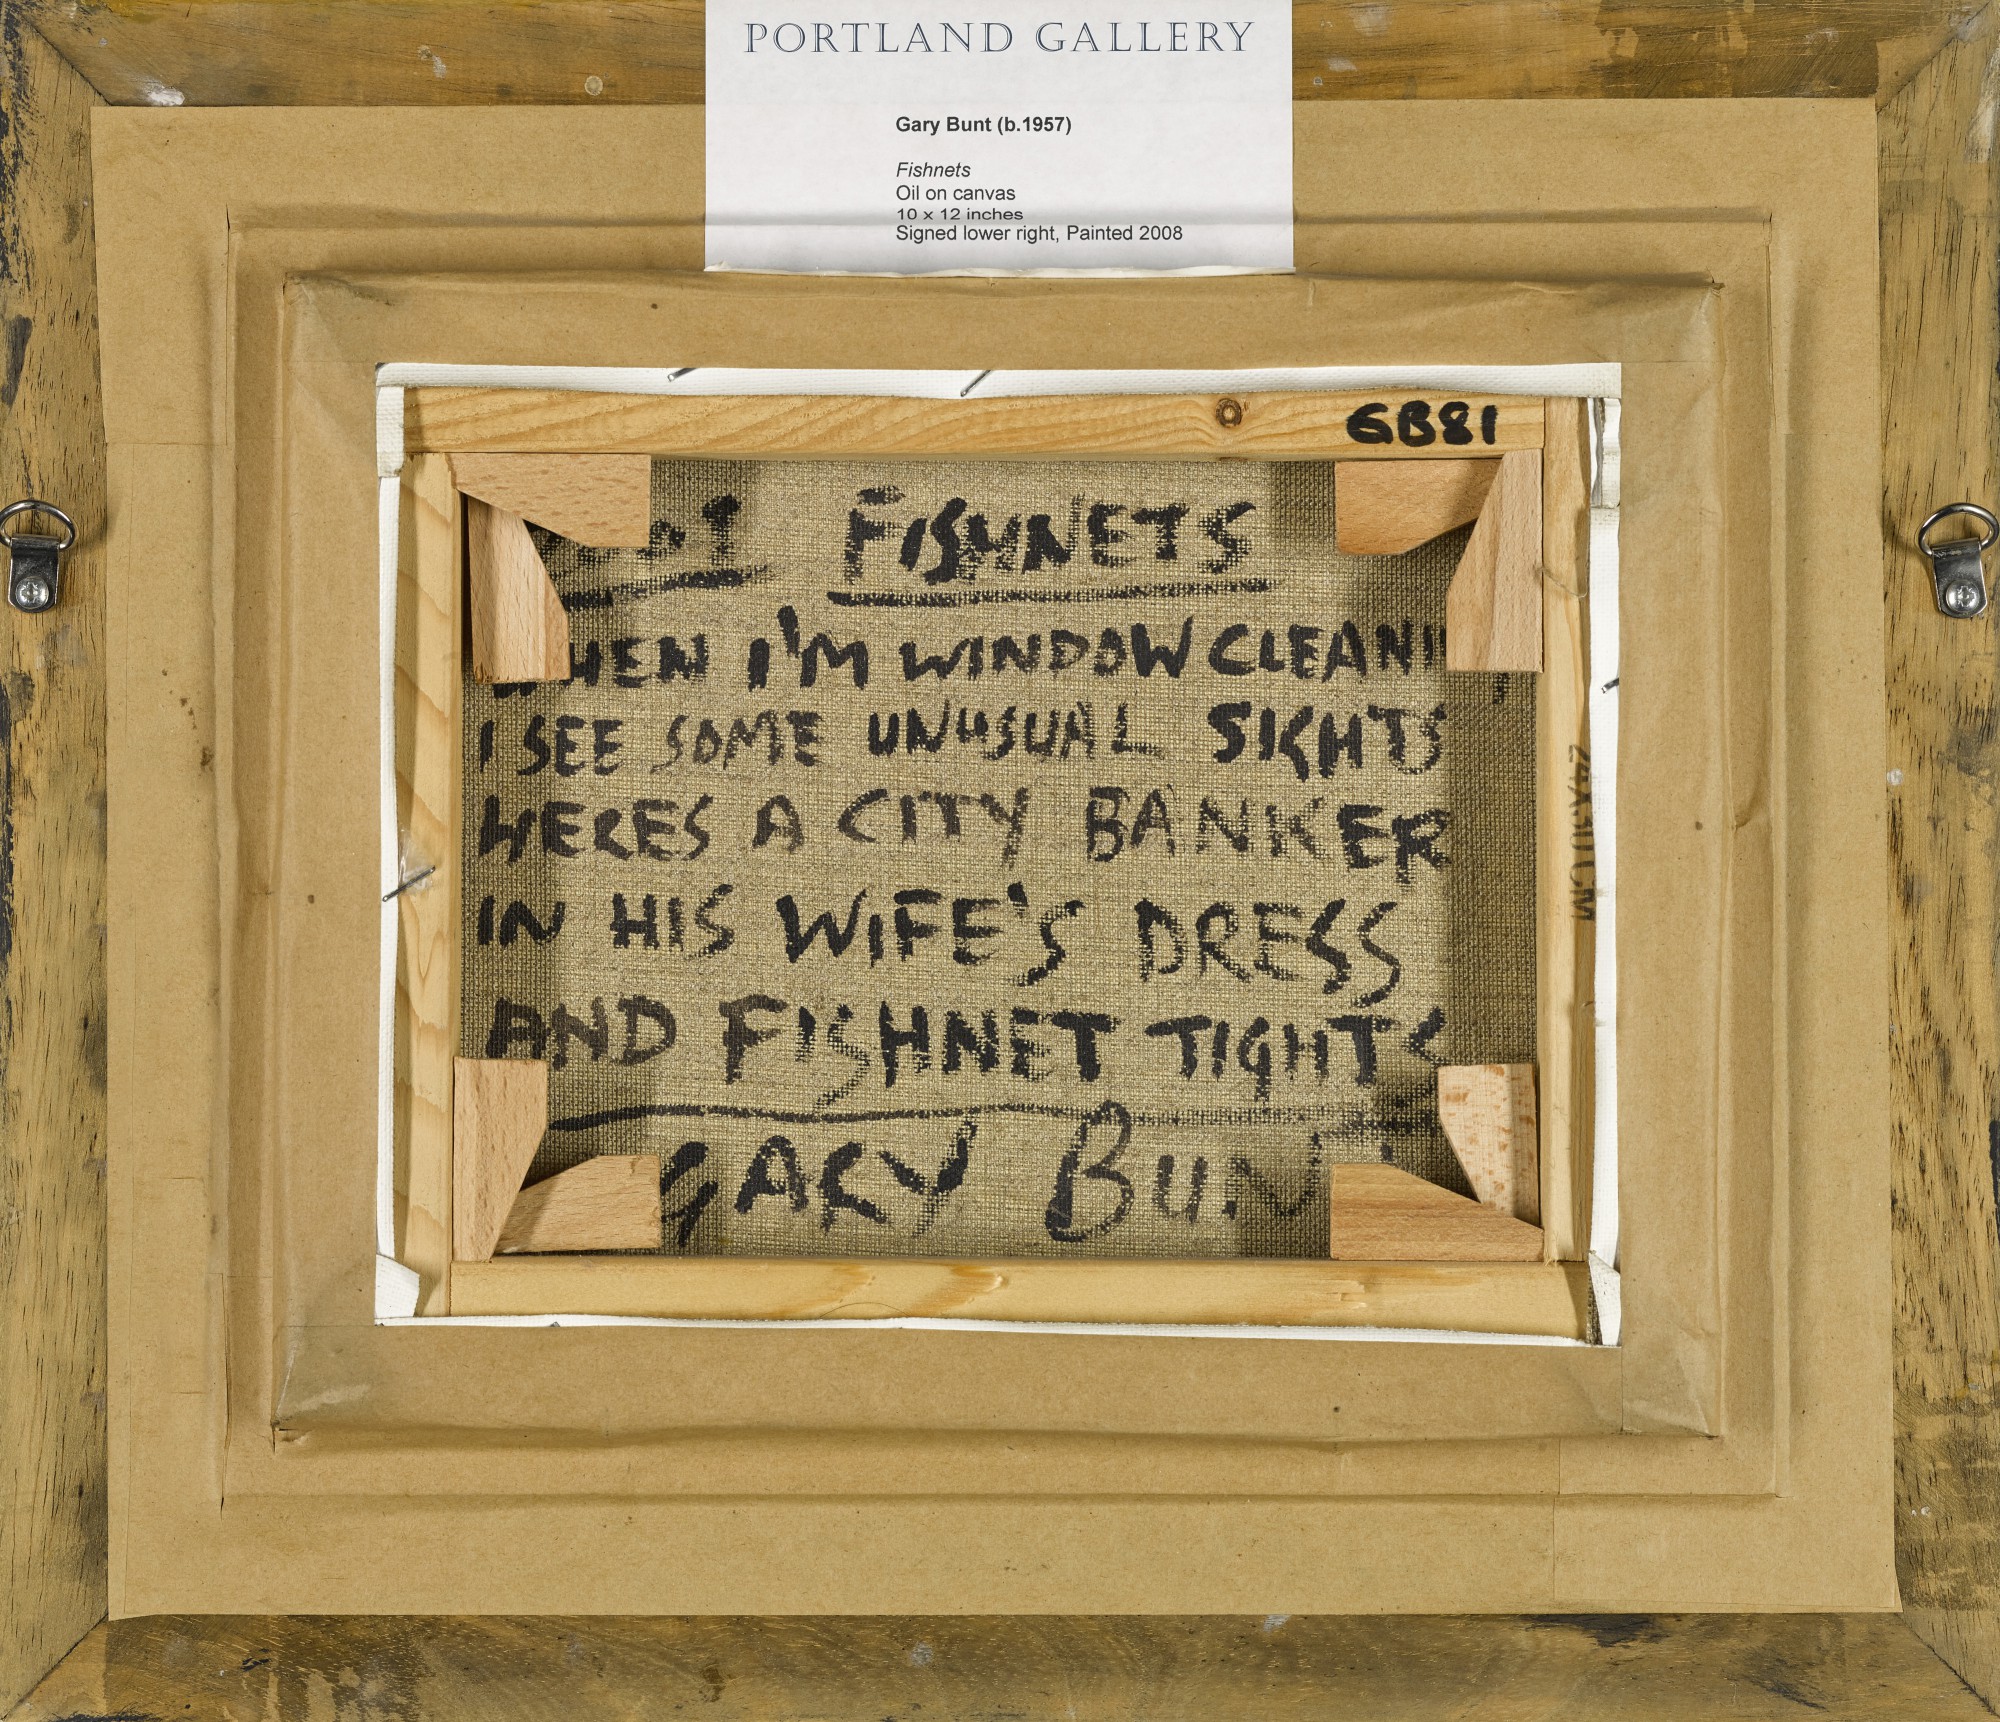 PORTLAND GALLERY
Gary Bunt (b.1957)
Fishnets
Oil on canvas
10 x 12 inches
Signed lower right, Painted 2008
GB81
FISHNETS
WHEN I'M WINDOW CLEANI
I SEE SOME UNUSUAL SIGHTS
HERES A CITY BANKER
IN HIS WIFE'S DRESS
AND FISHNET TIGHTS
GARY BUNT